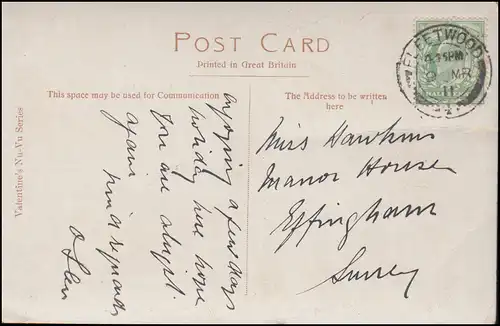 POST CARD
Printed in Great Britain
This space may be used for Communication
The Address to be written
here
Valentine's Nu-Vu Series
FLEETWOOD
4.15PM
MR
11
enjoying a few days
holiday here hope
you are alright
again kind regards
Miss Hawkins
Manor House
Effingham
Surrey